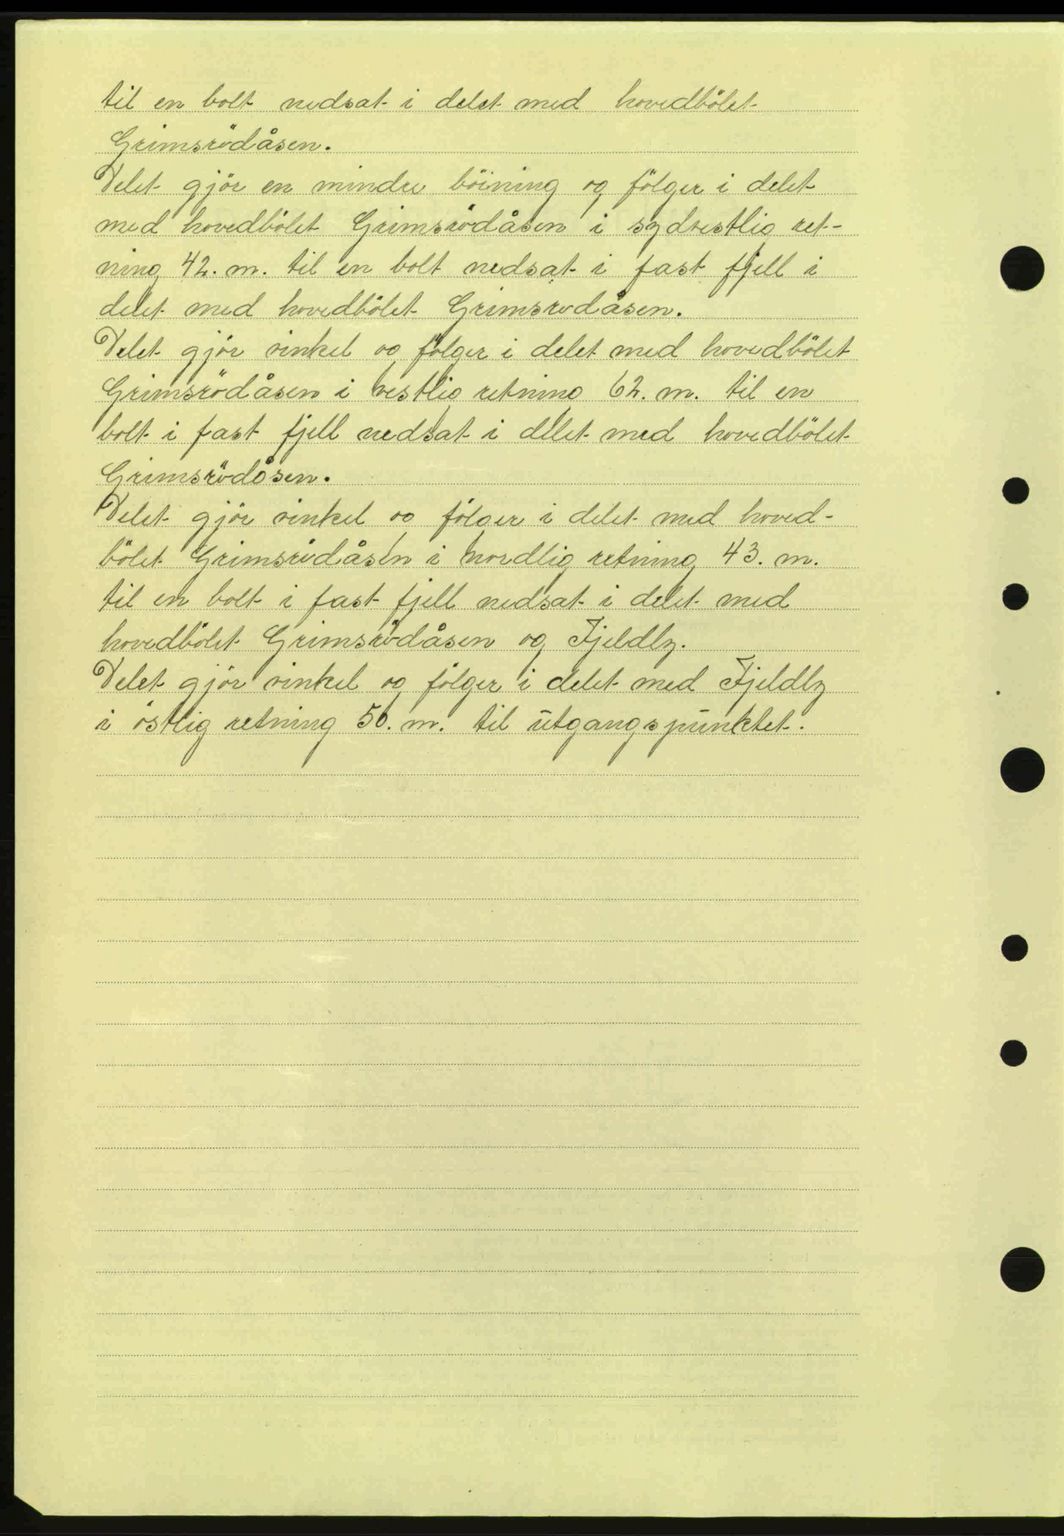 til en bolt nedsat i delet med hovedbölet
Grimsrödåsen.
Delet gjör en mindre böining og fölger i delet
med hovedbölet Grimsrödåsen i sydvestlig ret-
ning 42. m. til en bolt nedsat i fast fjell i
delet med hovedbölet Grimsrödåsen.
Delet gjör vinkel og fölger i delet med hovedbölet
Grimsrödåsen i vestlig retning 62. m. til en
bolt i fast fjell nedsat i delet med hovedbölet
Grimsrödåsen.
Delet gjör vinkel og fölger i delet med hoved-
bölet Grimsrödåsen i nordlig retning 43. m.
til en bolt i fast fjell nedsat i delet med
hovedbölet Grimsrödåsen og Fjeldly.
Delet gjör vinkel og fölger i delet med Fjeldly
i östlig retning 50. m. til utgangspunktet.